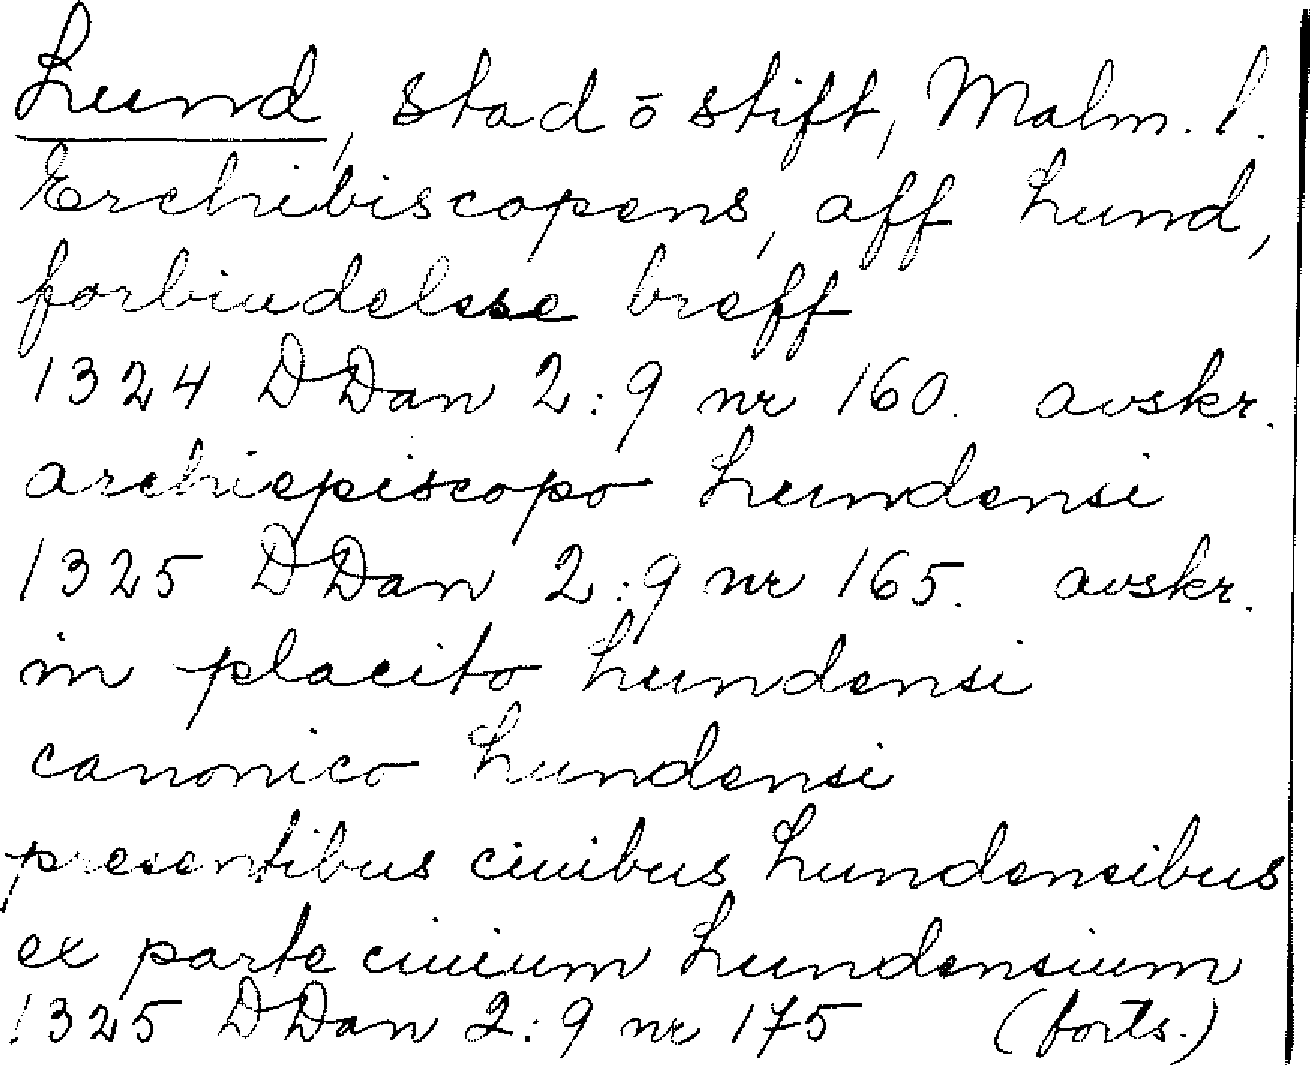 Lund, stad ō stift, Malm. l.
Erchibiscopens, aff Lund,
forbindelsse breff
1324 DDan 2:9 nr 160. avskr.
archiepiscopo Lundensi
1325 DDan 2:9 nr 165. avskr.
in placito Lundensi
canonico Lundensi
presentibus ciuibus Lundensibus
ex parte ciuium Lundensium
1325 DDan 2:9 nr 175 (forts.)